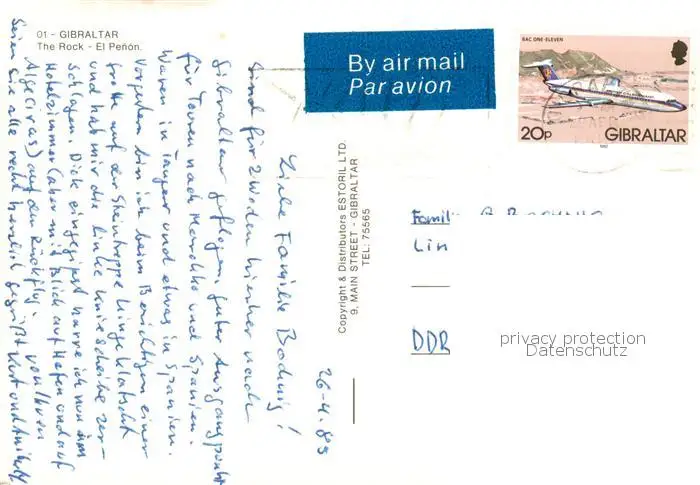 01 - GIBRALTAR
The Rock - El Peñón.
By air mail
Par avion
BAC ONE-ELEVEN
20p GIBRALTAR
1982
Copyright & Distributors ESTORIL LTD.
9, MAIN STREET - GIBRALTAR
TEL: 75565
26-4. 89
Liebe Familie
sind für 2 Wochen hierher nach
Gibraltar geflogen, guter Ausgangspunkt
für Touren nach Marokko und Spanien.
Waren in Tanger und etwas in Spanien.
Vorgestern bin ich beim Besichtigen einer
Grotte auf der Steintreppe hingeklatscht
und hab mir die linke Kniescheibe zer-
schlagen. Dick eingegipst harre ich nun im
Hotelzimmer (aber mit Blick auf Hafen und auf
Algeciras) auf den Rückflug.
Seien Sie alle recht herzlich gegrüßt
von Ihren
Familie
Lin
DDR
privacy protection
Datenschutz